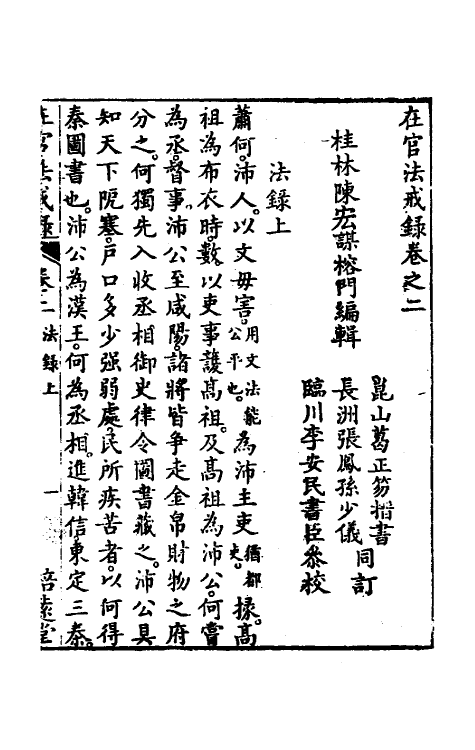 在官法戒錄卷之二
桂林陳宏謀榕門編輯
崑山葛正笏搢書
長洲張鳳孫少儀同訂
臨川李安民書臣叅校
法錄上
蕭何。沛人。以文毋害。用文法能公平也。為沛主吏猶都吏。掾。高
祖為布衣時。數以吏事護高祖。及高祖為沛公。何嘗
為丞。督事。沛公至咸陽。諸將皆爭走金帛財物之府
分之。何獨先入收丞相御史律令圖書藏之。沛公具
知天下阨塞。戶口多少。强弱處。民所疾苦者。以何得
秦圖書也。沛公為漢王。何為丞相。進韓信東定三秦。
在官法戒錄 卷二 法錄上 一 培遠堂